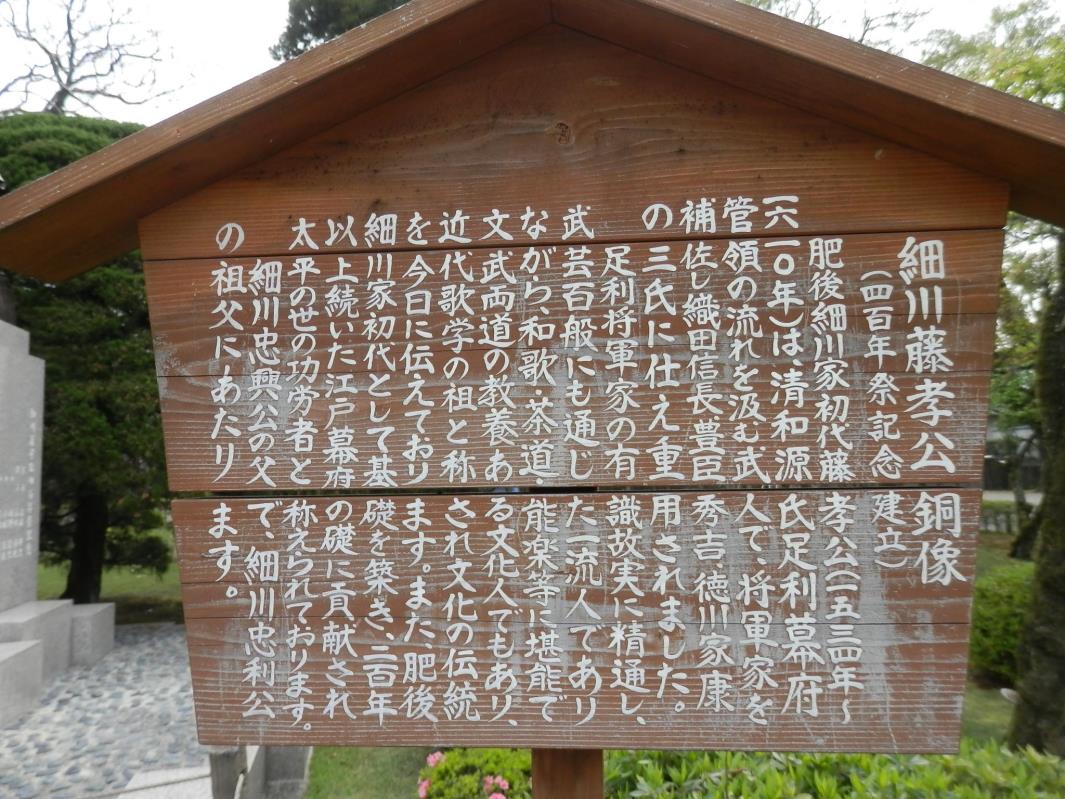 細川藤孝公銅像
(四百年祭記念建立)
肥後細川家初代藤孝公(一五三四年〜
一六一〇年)は清和源氏足利幕府
管領の流れを汲む武人で、将軍家を
補佐し織田信長豊臣秀吉、徳川家康
の三氏に仕え重用されました。
足利将軍家の有識故実に精通し、
武芸百般にも通じた一流人であり
ながら、和歌、茶道、能楽等に堪能で
文武両道の教養ある文化人でもあり、
近代歌学の祖と称され文化の伝統
を今日に伝えております。また、肥後、
細川家初代として基礎を築き、二百年
以上続いた江戸幕府の礎に貢献され
太平の世の功労者と称えられております。
細川忠興公の父で、細川忠利公
の祖父にあたります。